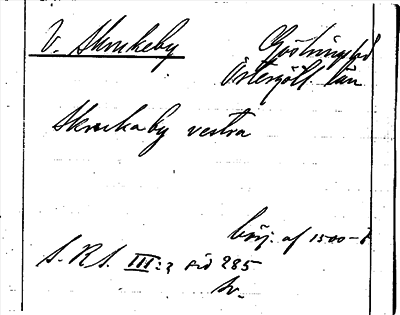 V. Skrukeby
Göstrings hd
Östergötl. län
Skrukaby vestra
börj. af 1500-t
S.R.S. III:2 sid 285
Sv.